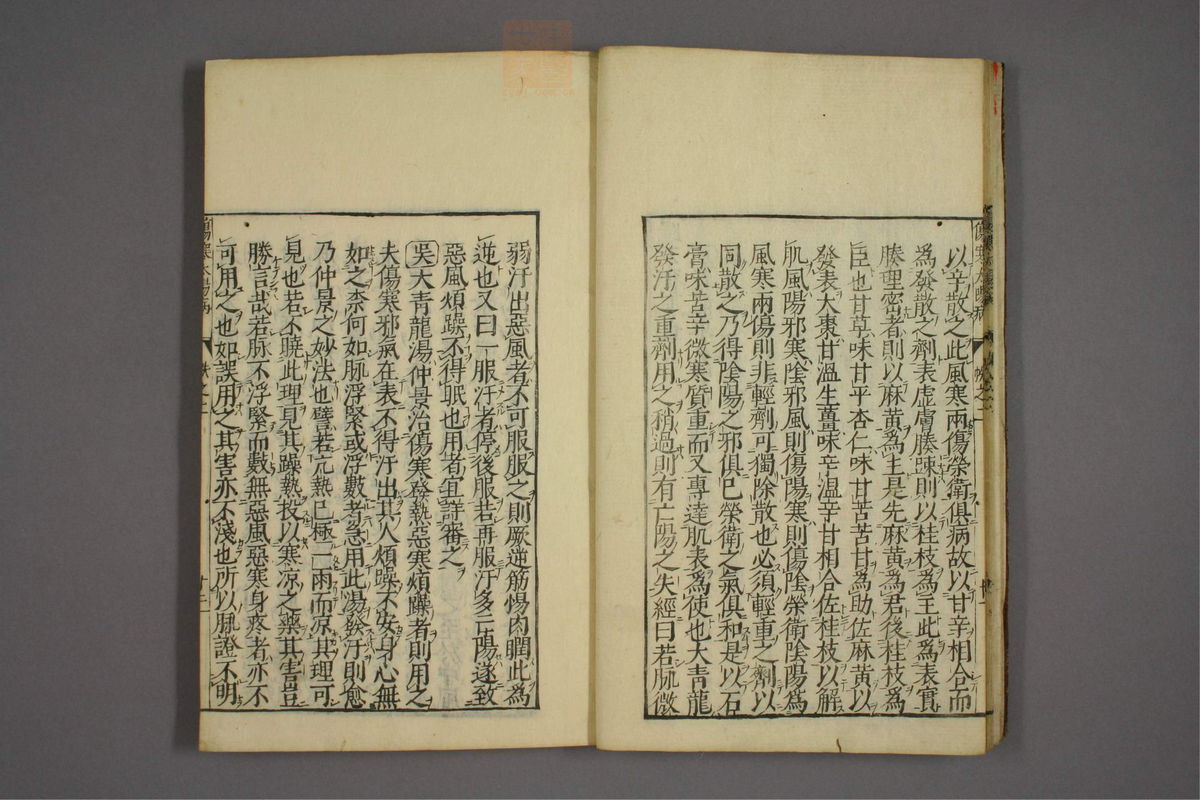 以辛散之此風寒兩傷榮衛俱病故以甘辛相合而
爲發散之劑表虛膚腠踈則以桂枝爲主此爲表實
腠理密者則以麻黄爲主是先麻黄爲君後桂枝爲
臣也甘草味甘平杏仁味甘苦苦甘爲助佐麻黄以
發表大棗甘溫生薑味辛溫辛甘相合佐桂枝以解
肌風陽邪寒陰邪風則傷陽寒則傷陰榮衛陰陽爲
風寒兩傷則非輕劑可獨除散也必須輕重之劑以
同散之乃得陰陽之邪俱已榮衛之氣俱和是以石
膏味苦辛微寒質重而又專達肌表爲使也大青龍
發汗之重劑用之稍過則有亡陽之失經曰若脉微
弱汗出惡風者不可服服之則厥逆筋惕肉瞤此爲
逆也又曰一服汗者停後服若再服汗多亡陽遂致
惡風煩躁不得眠也用者宜詳審之
吳大青龍湯仲景治傷寒發熱惡寒煩躁者則用之
夫傷寒邪氣在表不得汗出其人煩躁不安身心無
如之奈何如脉浮緊或浮數者急用此湯發汗則愈
乃仲景之妙法也譬若亢熱已極一雨而凉其理可
見也若不曉此理見其躁熱投以寒凉之藥其害豈
勝言哉若脉不浮緊而數無惡風惡寒身疼者亦不
可用之也如誤用之其害亦不淺也所以脉證不明